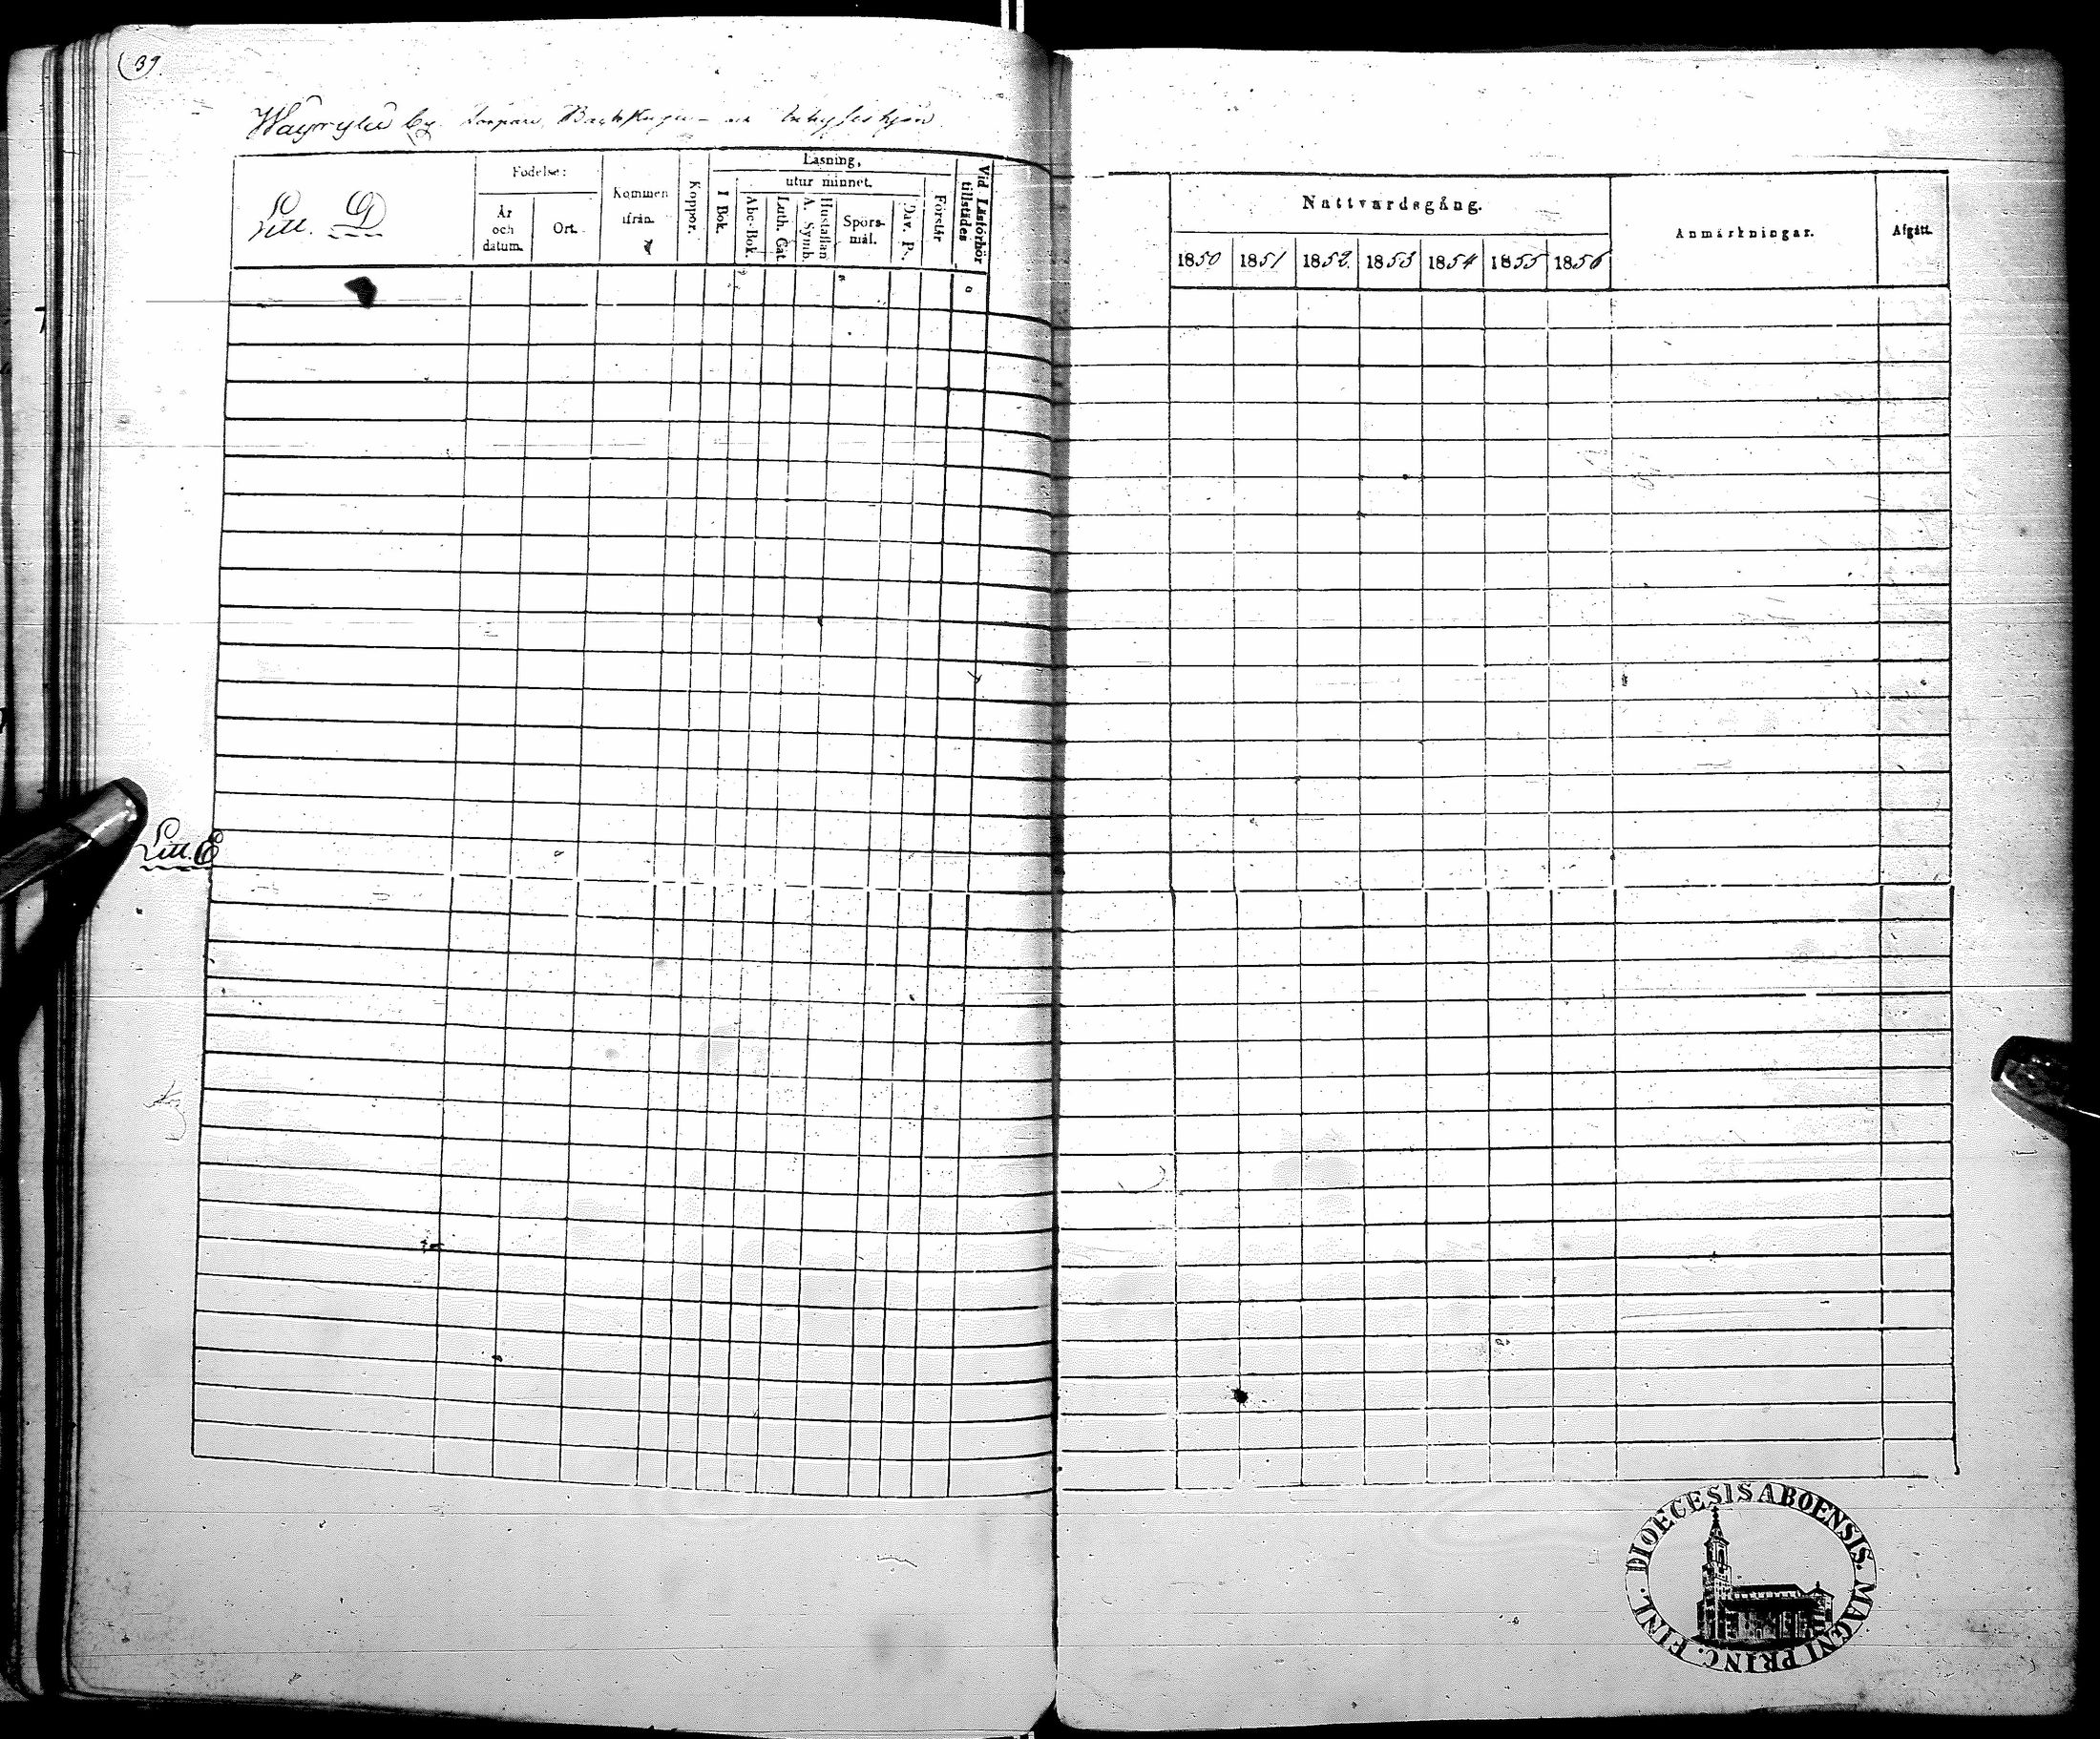 39.
Wäyrylä by. Torpare, Backstugu- och Inhyseshjon
Litt. D
Födelse:
År och datum.
Ort.
Kommen ifrån.
Koppor.
Läsning,
I Bok.
utur minnet.
Abc-Bok.
Luth. Cat.
Hustaflan A. Symb.
Spörsmål.
Dav. Ps.
Förstår
Vid Läsförhör tillstädes
Litt. E
Nattvardsgång.
1850 1851 1852. 1853 1854 1855 1856
Anmärkningar.
Afgått.
DIOECESIS ABOENSIS. MAGNI PRINC. FINL.